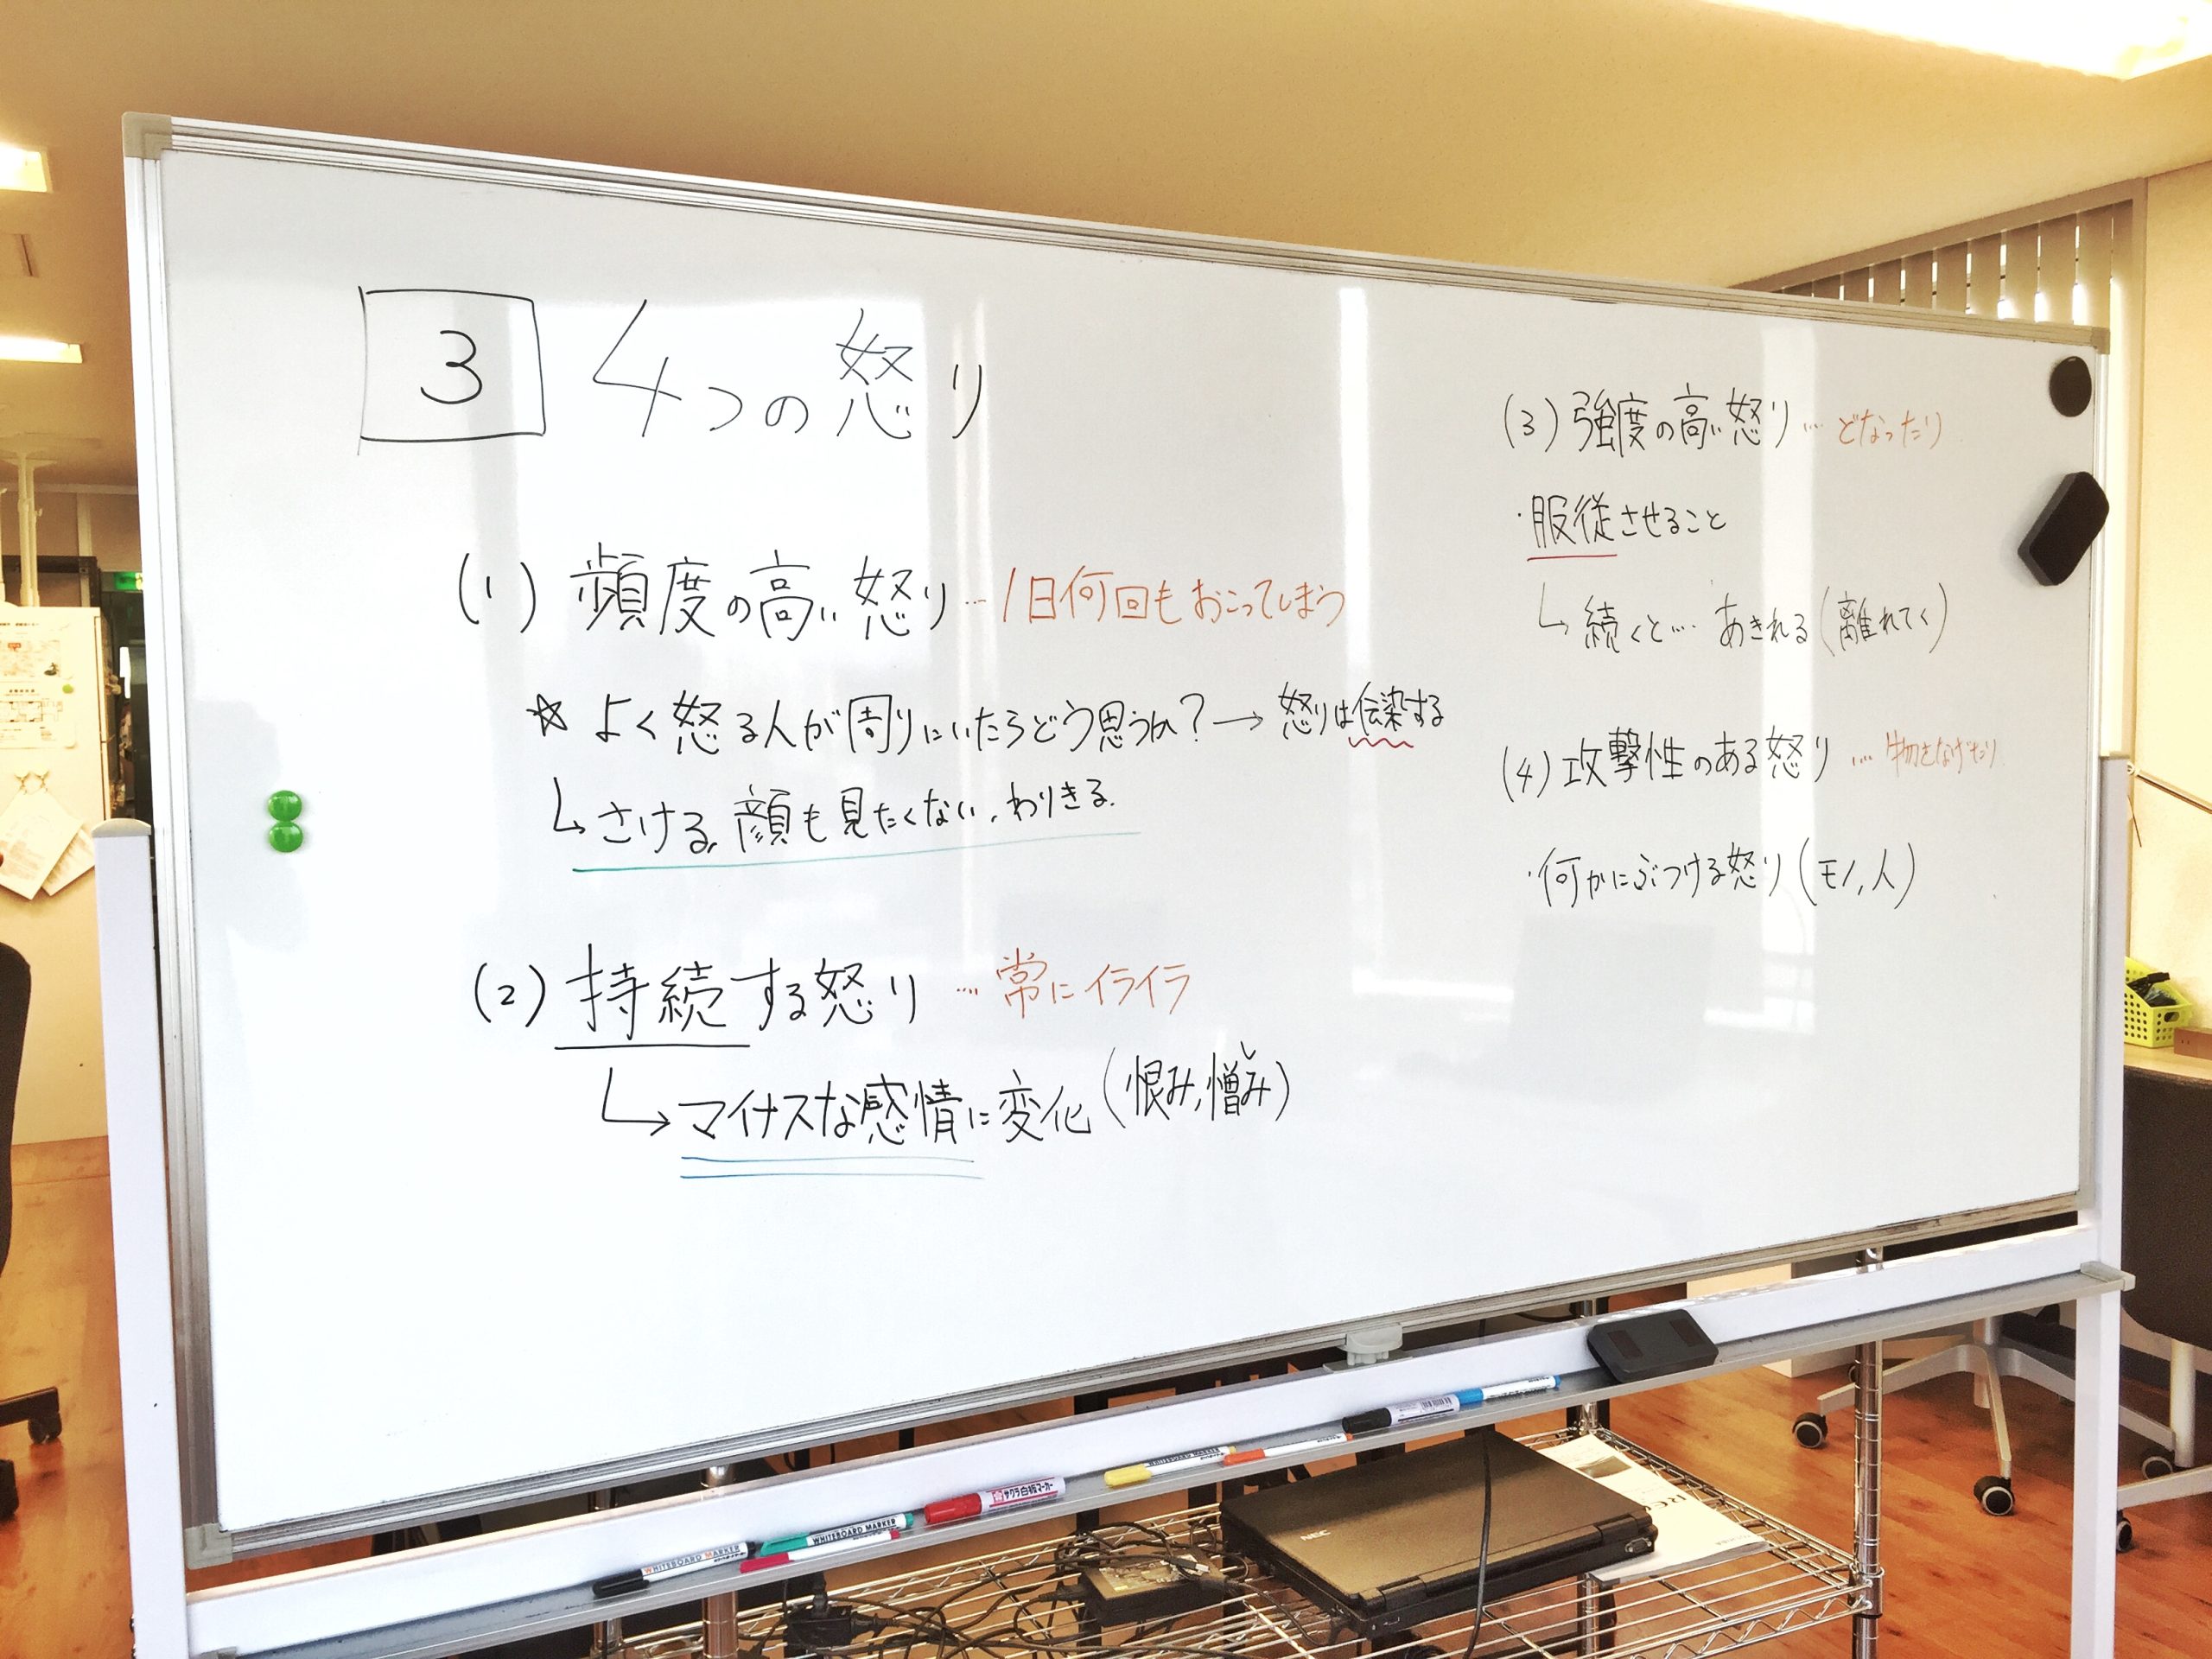 3 4つの怒り
(1) 頻度の高い怒り…1日何回もおこってしまう
☆ よく怒る人が周りにいたらどう思うか?→怒りは伝染する
↳さける、顔も見たくない、わりきる。
(2) 持続する怒り …常にイライラ
↳マイナスな感情に変化(恨み,憎しみ)
(3) 強度の高い怒り…どなったり
・服従させること
↳続くと… あきれる(離れてく)
(4) 攻撃性のある怒り …物をなげたり
・何かにぶつける怒り(モノ,人)
WHITEBOARD MARKER
WHITEBOARD MARKER
サクラ白板マーカー
NEC